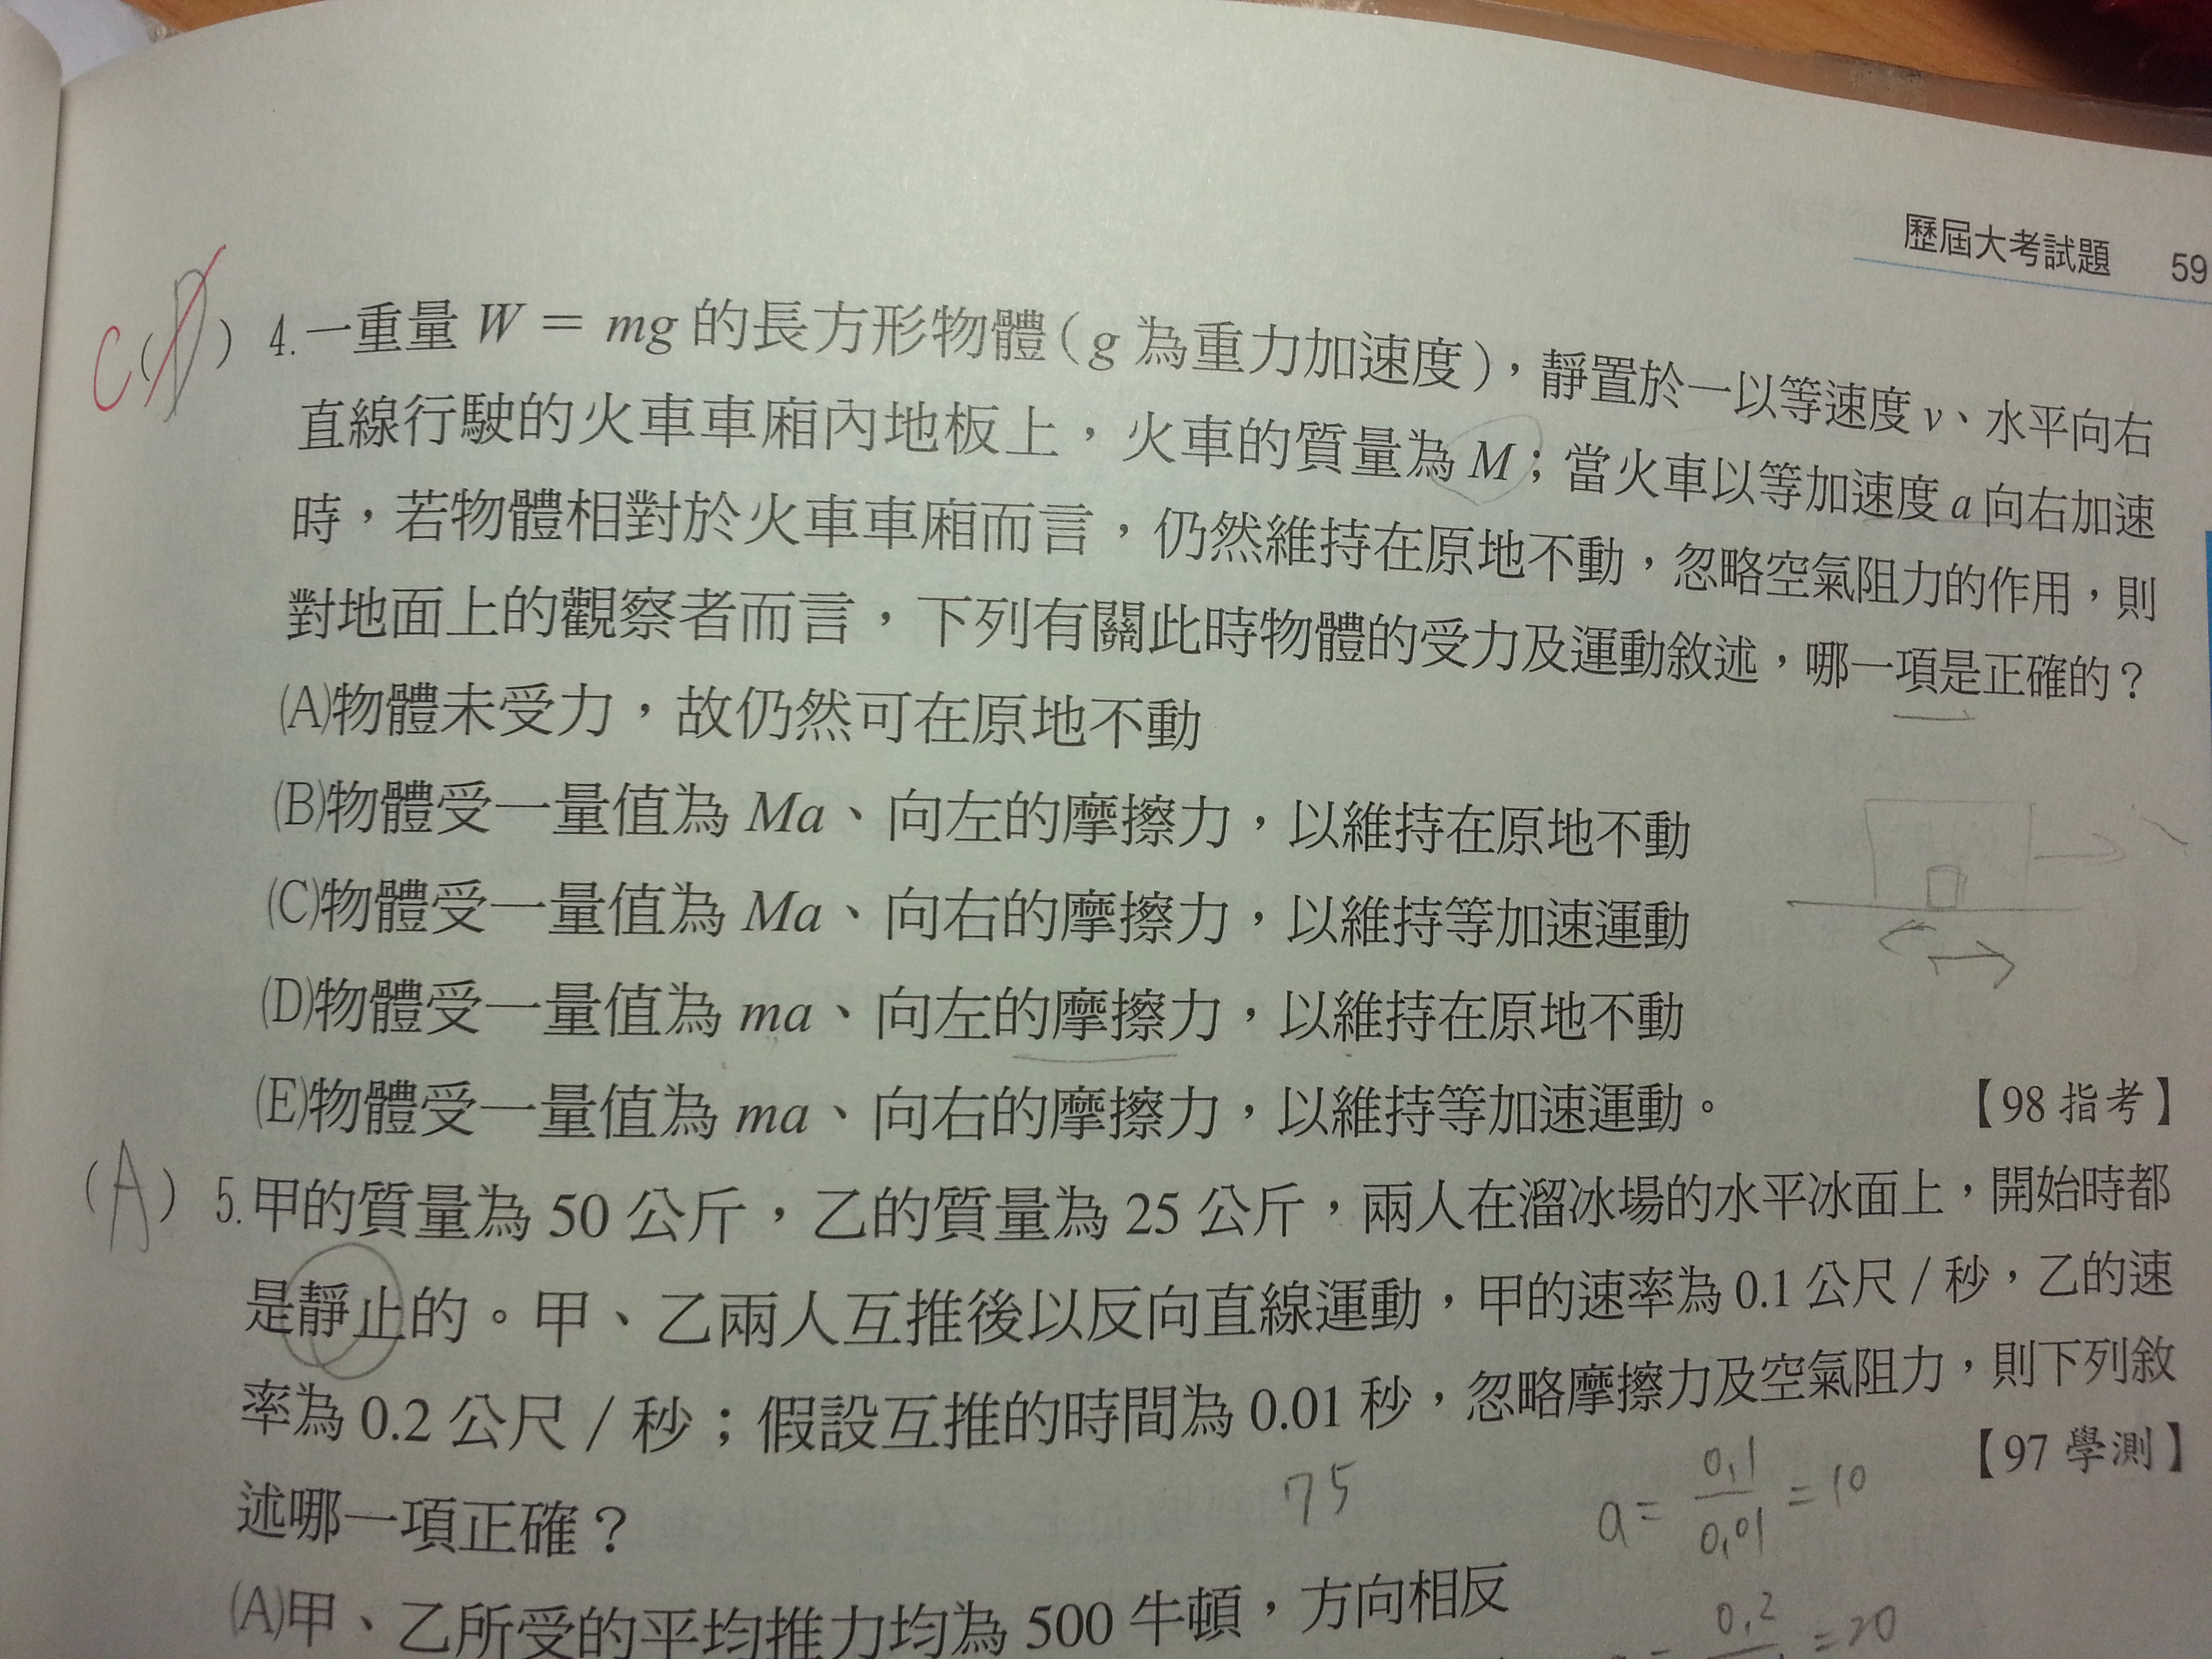 歷屆大考試題 59
C(D) 4.一重量 W = mg 的長方形物體(g 為重力加速度),靜置於一以等速度 v、水平向右
直線行駛的火車車廂內地板上,火車的質量為 M;當火車以等加速度 a 向右加速
時,若物體相對於火車車廂而言,仍然維持在原地不動,忽略空氣阻力的作用,則
對地面上的觀察者而言,下列有關此時物體的受力及運動敘述,哪一項是正確的?
(A)物體未受力,故仍然可在原地不動
(B)物體受一量值為 Ma、向左的摩擦力,以維持在原地不動
(C)物體受一量值為 Ma、向右的摩擦力,以維持等加速運動
(D)物體受一量值為 ma、向左的摩擦力,以維持在原地不動
(E)物體受一量值為 ma、向右的摩擦力,以維持等加速運動。 【98 指考】
(A) 5.甲的質量為 50 公斤,乙的質量為 25 公斤,兩人在溜冰場的水平冰面上,開始時都
是靜止的。甲、乙兩人互推後以反向直線運動,甲的速率為 0.1 公尺/秒,乙的速
率為 0.2 公尺/秒;假設互推的時間為 0.01 秒,忽略摩擦力及空氣阻力,則下列敘
述哪一項正確? 【97 學測】
75
a = 0.1/0.01 = 10
(A)甲、乙所受的平均推力均為 500 牛頓,方向相反
0.2 = 20